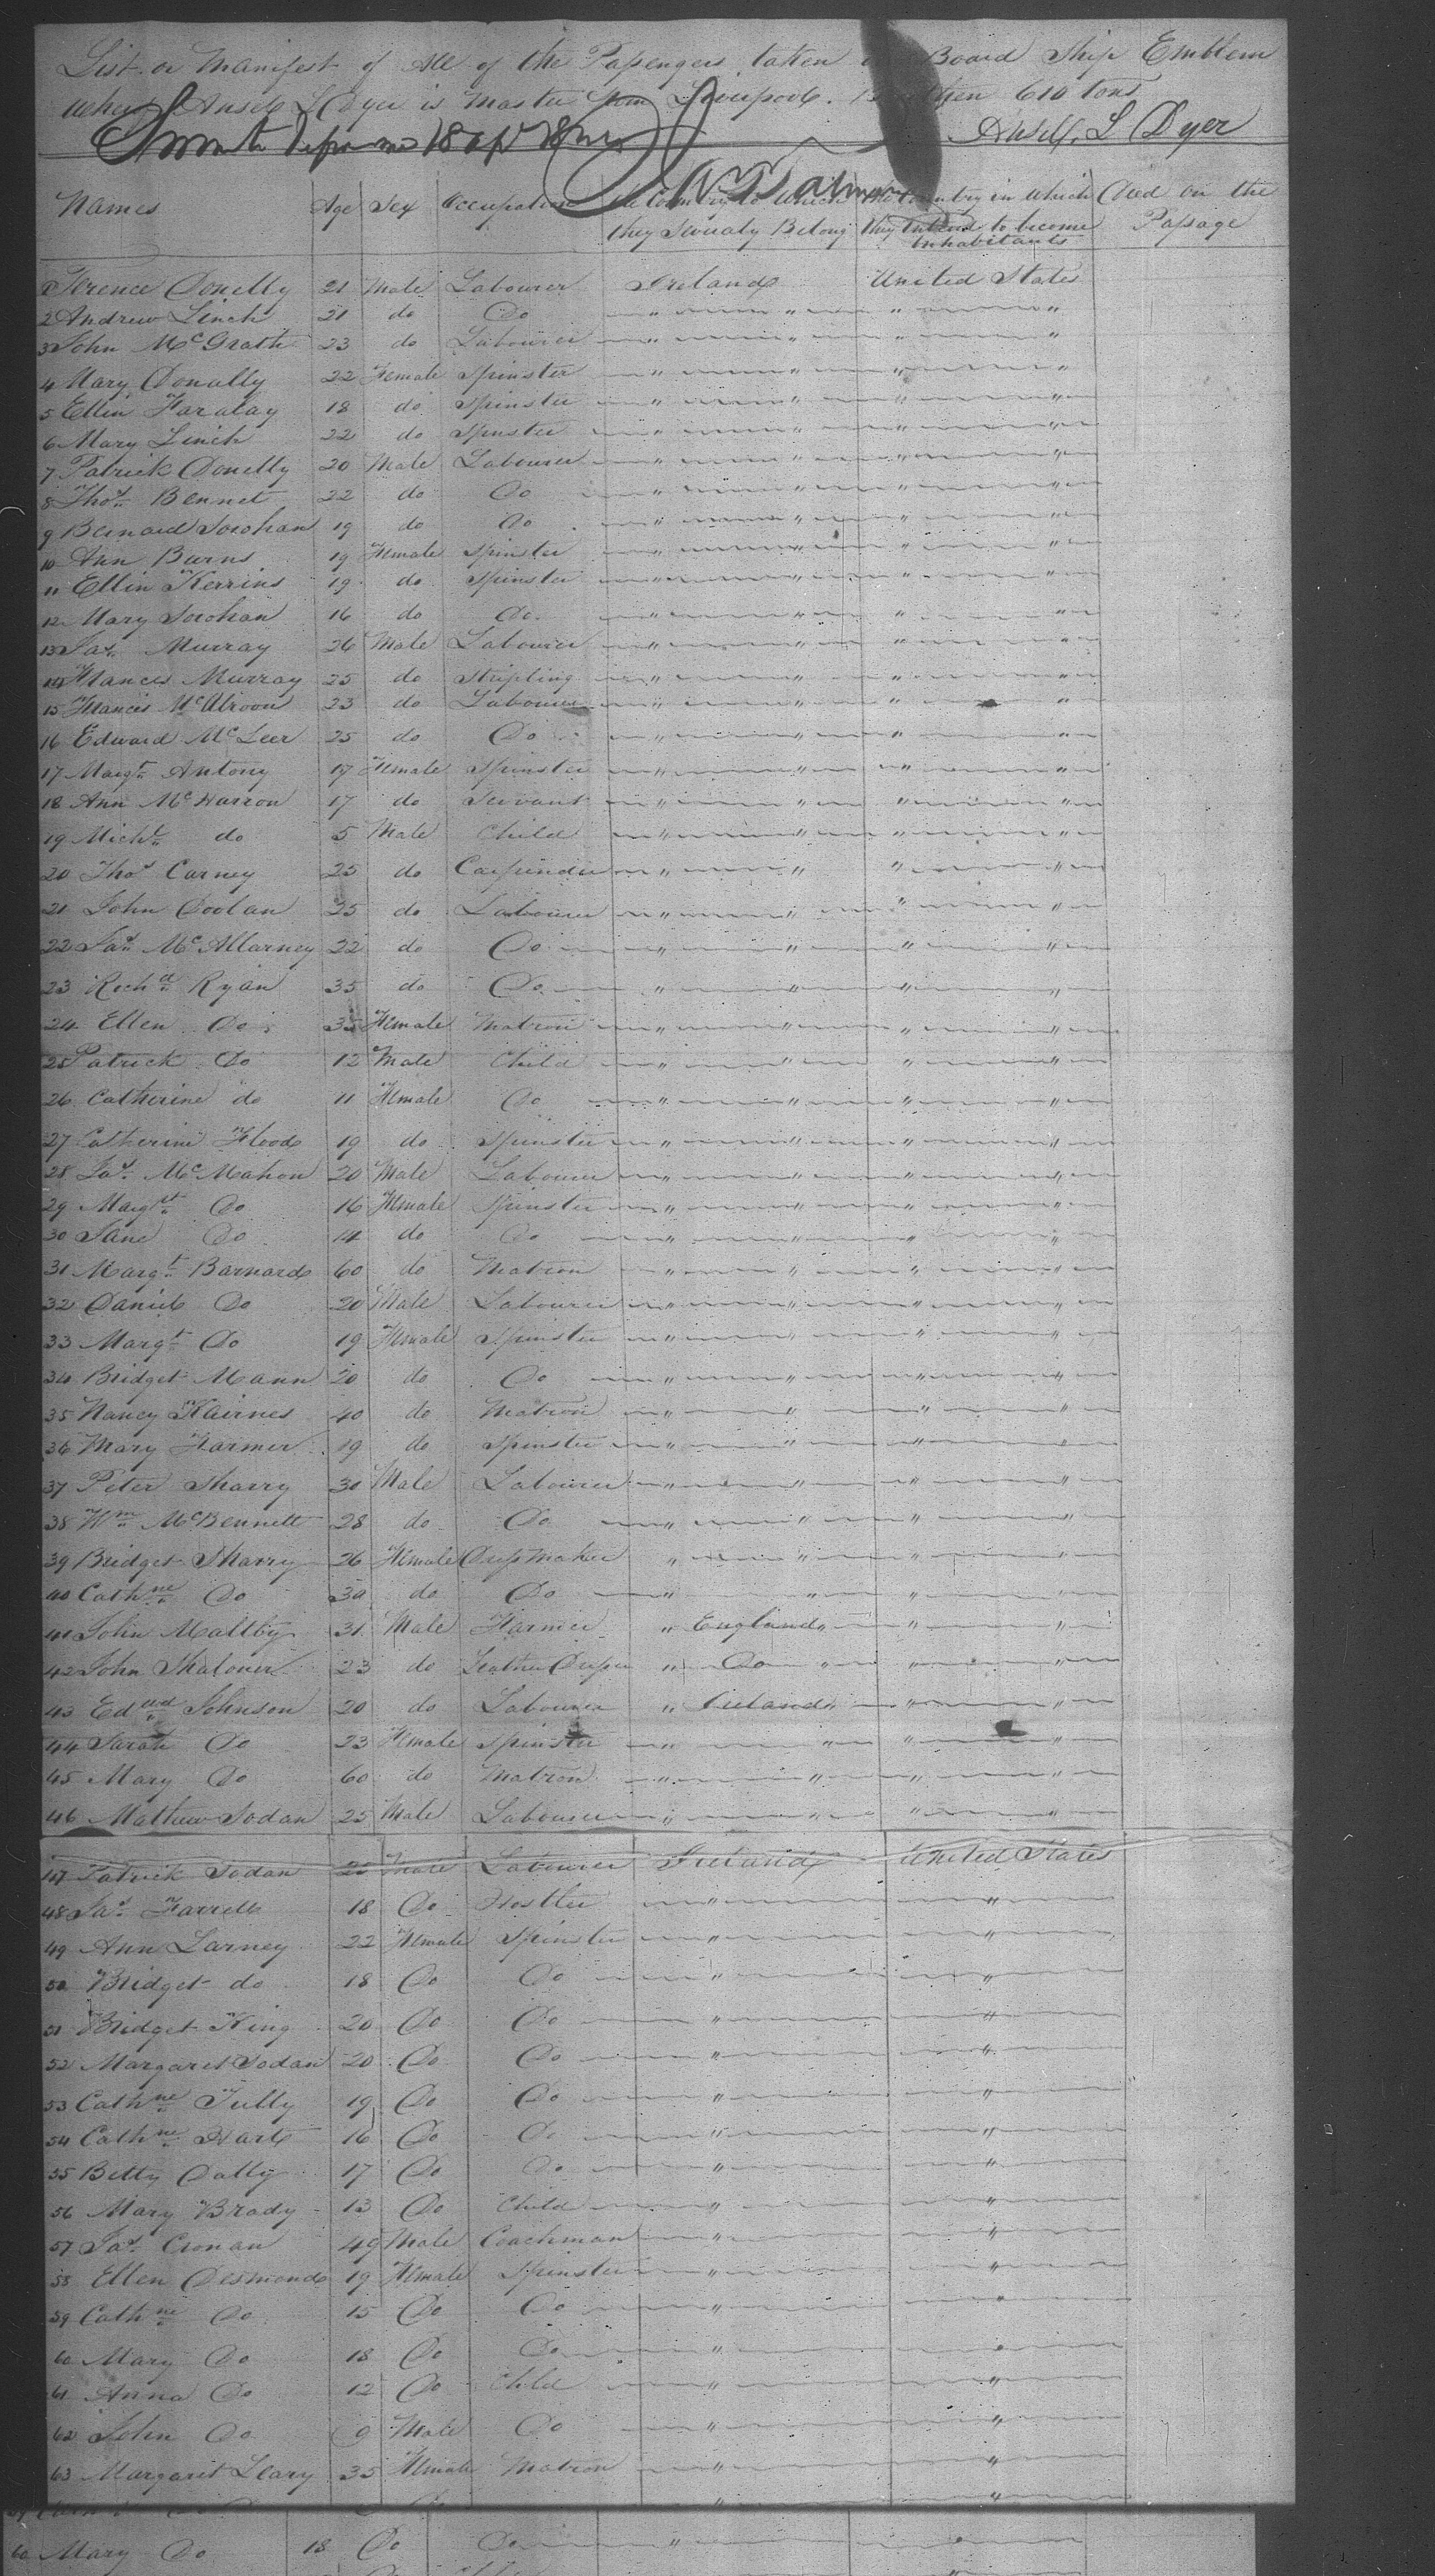 List or Manifest of All of the Passengers taken Board Ship Emblem
Ansel L Dyer is Master from Liverpool. Burthen 610 tons
Ansel L Dyer
Names Age Sex Occupation The Country to which they Severaly Belong The Country in which they Intend to become Inhabitants Died on the Passage
1 Terence Donelly 21 Male Labourer Ireland United States
2 Andrew Linch 21 do Do " " " "
3 John McGrath 23 do Labourer " " " "
4 Mary Donally 22 Female Spinster " " " "
5 Ellin Faralay 18 do Spinster " " " "
6 Mary Linch 22 do Spinster " " " "
7 Patrick Donelly 20 Male Labourer " " " "
8 Thos Bennet 22 do Do " " " "
9 Bernard Sorohan 19 do Do " " " "
10 Ann Burns 19 Female Spinster " " " "
11 Ellin Kerrins 19 do Spinster " " " "
12 Mary Sorohan 16 do Do " " " "
13 Jas Murray 26 Male Labourer " " " "
14 Frances Murray 25 do Stripling " " " "
15 Francis 23 do Labourer " " " "
16 Edward McLeer 25 do Do " " " "
17 Margt Antony 17 Female Spinster " " " "
18 Ann McHarron 17 do Servant " " " "
19 Michl do 5 Male Child " " " "
20 Thos Carney 25 do Carpinder " " " "
21 John Doolan 25 do Labourer " " " "
22 Jas McAllarney 22 do Do " " " "
23 Rechd Ryan 35 do Do " " " "
24 Ellen Do 35 Female Matron " " " "
25 Patrick Do 12 Male Child " " " "
26 Catherine do 11 Female Do " " " "
27 Catherine Flood 19 do Spinster " " " "
28 Jas McMahon 20 Male Labourer " " " "
29 Margt Do 16 Female Spinster " " " "
30 Jane Do 14 do Do " " " "
31 Margt Barnard 60 do Matron " " " "
32 Daniel Do 20 Male Labourer " " " "
33 Margt Do 19 Female Spinster " " " "
34 Bridget Mann 20 do Do " " " "
35 Nancy Kairnes 40 do Matron " " " "
36 Mary Farmer 19 do Spinster " " " "
37 Peter Sharry 30 Male Labourer " " " "
38 Wm McBennett 28 do Do " " " "
39 Bridget Sharry 26 Female Dressmaker " " " "
40 Cathne Do 30 do Do " " " "
41 John Maltby 31 Male Farmer " England " " "
42 John Shaloner 23 do Leather Dresser " Do " " "
43 Edwd Johnson 20 do Labourer " Ireland " " "
44 Sarah Do 23 Female Spinster " " " "
45 Mary Do 60 do Matron " " " "
46 Mathew Sodan 25 Male Labourer " " " "
47 Patrick Sodan 25 Male Labourer Ireland United States
48 Jas Farrell 18 Do Hostler " "
49 Ann Larney 22 Female Spinster " "
50 Bridget do 18 Do Do " "
51 Bridget King 20 Do Do " "
52 Margaret Sodan 20 Do Do " "
53 Cathne Tully 19 Do Do " "
54 Cathne Hart 16 Do Do " "
55 Betty Dally 17 Do Do " "
56 Mary Brady 13 Do Child " "
57 Jas Cronan 49 Male Coachman " "
58 Ellen Desmond 19 Female Spinster " "
59 Cathne Do 15 Do Do " "
60 Mary Do 18 Do Do " "
61 Anna Do 12 Do Child " "
62 John Do 9 Male Do " "
63 Margaret Leary 35 Female Matron " "
60 Mary Do 18 Do Do " "